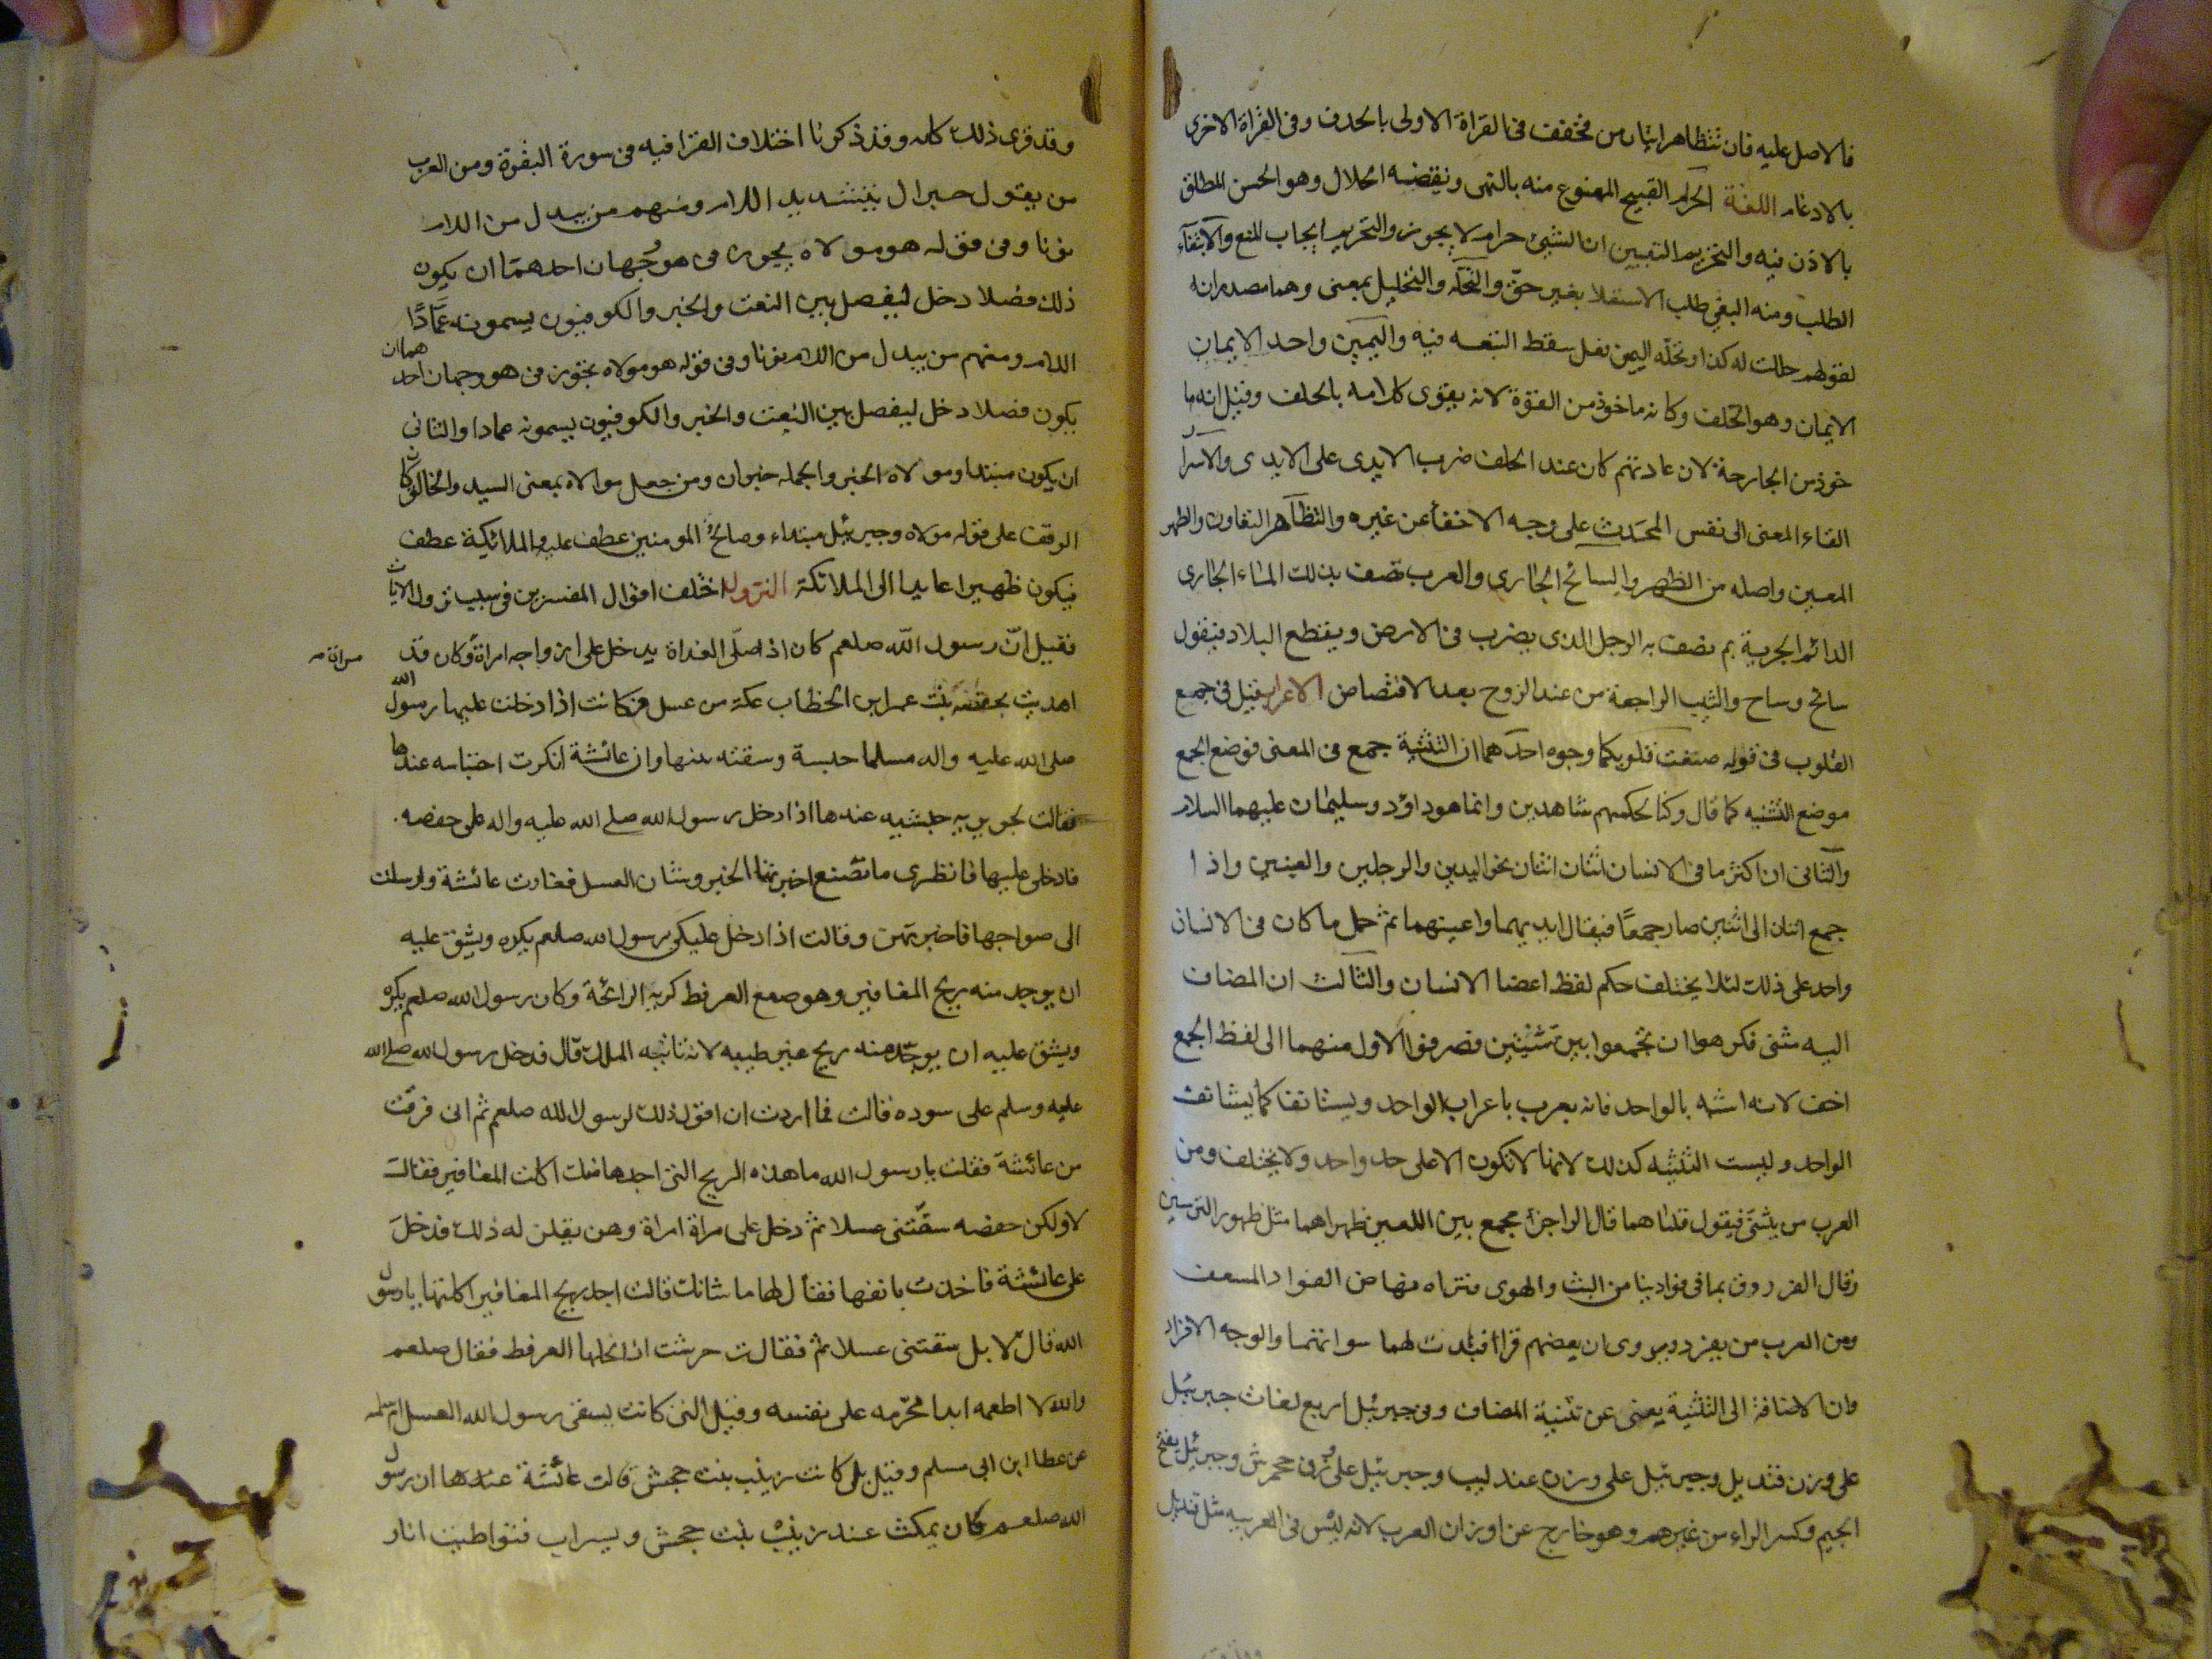 فالاصل عليه فان تتظاهرا بتان من مخفف فى القراة الاولى بالحذف وفى القراة الاخرى
بالادغام اللغة الحرام القبيح الممنوع منه بالنهى ونقيضه الحلال وهو الحسن المطلق
بالاذن فيه والتحريم التبيين ان الشيئ حرام لا يجوز والتحريم ايجاب المنع والابتغآء
الطلب ومنه البغى طلب الاستعلا بغير حق والتحلّه والتحليل بمعنى وهما مصدران
لقولهم حللت له كذا وتحلّه اليمين فعل سقط التبعه فيه واليمين واحد الايمان
الايمان وهو الحلف وكانه ماخوذ من القوة لانه يقوى كلامه بالحلف وقيل انه ما
خوذ من الجارحة لان عادتهم كان عند الحلف ضرب الايدى على الايدى والاسرار
القاء المعنى الى نفس المحدث على وجه الاخفأ عن غيره والتظاهر التعاون والظهر
المعين واصله من الظهر والسائح الجارى والعرب تصف بذلك الماء الجارى
الدائم الجرية ثم تصف به الرجل الذى يضرب فى الارض ويقطع البلاد فيقول
سائح وساح والثيب الراجعة من عند الزوج بعد الافتضاض الاعراب قيل فى جمع
القلوب فى قوله صغت قلوبكما وجوه احدهما ان التثنية جمع فى المعنى فوضع الجمع
موضع التثنيه كما قال وكنا لحكمهم شاهدين وانما هو داوٗد وسليمان عليهما السلام
والثانى ان اكثر ما فى الانسان اثنان اثنان نحو اليدين والرجلين والعينين واذا
جمع اثنان الى اثنين صار جمعًا فيقال ايديهما واعينهما ثم حمل ما كان فى الانسان
واحد على ذلك لئلا يختلف حكم لفظ اعضا الانسان والثالث ان المضاف
اليه مثنى فكرهوا ان تجمعوا بين تثنيتين فصرفوا الاول منهما الى لفظ الجمع
اخف لانه اشبه بالواحد فانه يعرب باعراب الواحد ويستانف كما يستانف
الواحد وليست التثنيه كذلك لانها لا تكون الا على حد واحد ولا يختلف ومن
العرب من يثنى فيقول قلباهما قال الراجز مجمع بين اللعين ظهراهما مثل ظهور الترسين
وقال الفرزدق بما فى فوادينا من البث والهوى فتراه منهاض الفواد المسعف
ومن العرب من يفرد ويروى ان بعضهم قرا فبدت لهما سواتهما والوجه الافراد
وان الاضافة الى التثنية يغنى عن تثنية المضاف وفى جبرئيل اربع لغات جبرئيل
على وزن قنديل وجبرئيل على وزن عندليب وجبرئيل على وزن جحمرش وجبرئيل بفتح
الجيم وكسر الراء من غير همز وهو خارج عن اوزان العرب لانه ليس فى العربيه مثل قنديل
وقد قرى ذلك كله وقد ذكرنا اختلاف القرا فيه فى سورة البقرة ومن العرب
من يقول جبرال بتشديد اللام ومنهم من يبدل من اللام
نونا وفى قوله هو مولاه يجوز فى هو وُجهان احدهما ان يكون
ذلك فضلا دخل ليفصل بين النعت والخبر والكوفيون يسمونه عمَّادًا
اللام ومنهم من يبدل من اللام نونا وفى قوله هو مولاه يجوز فى هو وجهان احدهما ان
يكون فضلا دخل ليفصل بين النعت والخبر والكوفيون يسمونه عمادا والثانى
ان يكون مبتدا ومولاه الخبر والجمله خبر ان ومن جعل مولاه بمعنى السيد والخالق كان
الوقف على قوله مولاه وجبرئيل مبتداء وصالحُ المومنين عطف عليه والملائكة عطف
فيكون ظهيرا عايدا الى الملائكة النزول اختلف اقوال المفسرين فى سبب نزول الايات
فقيل انّ رسول الله صلعم كان اذا صلّى الغداة يدخل على ازواجه امراة وكان قد
مراة مـ
اهديت بحفصة بنت عمر ابن الخطاب عكة من عسل فكانت اذا دخلت عليها رسول الله
صلى الله عليه واله مسلما حبسة وسقته منها وان عائشة انكرت احتباسه عندها
فقالت لجويريه حبشيه عندها اذا دخل رسول الله صلى الله عليه واله على حفصه
فادخلى عليها فانظرى ما تصنع اخبرتها الخبر وشان العسل فغارت عائشة وارسلت
الى صواحبها فاخبرتهن وقالت اذا دخل عليكن رسول الله صلعم يكره ويشق عليه
ان يوجد منه ريح المغافير وهو صمغ العرفط كريه الرائحة وكان رسول الله صلعم يكره
ويشق عليه ان يوجد منه ريح غير طيبه لانه تاتيه الملك قال فدخل رسول الله صلى الله
عليه وسلم على سوده قالت فما اردت ان اقول ذلك لرسول الله صلعم ثم انى فرقت
من عائشة فقلت يا رسول الله ما هذه الريح التى اجدها منك اكلت المغافير فقالت
لا ولكن حفصه سقتنى عسلا ثم دخل على مراة امراة وهن يقلن له ذلك فدخل
على عائشة فاخذت بانفها فقال لها ما شانك قالت اجد ريح المغافير اكلتها يا رسول
الله قال لا بل سقتنى عسلا ثم فقالت حرشت اذا نحلها العرفط فقال صلعم
والله لا اطعمه ابدا محرّمه على نفسه وقيل التى كانت يسقى رسول الله العسل ام سلمه
عن عطا ابن ابى مسلم وقيل بل كانت زينب بنت جحش قالت عائشة عندها ان رسول
الله صلعم كان يمكث عند زينب بنت جحش ويسراب فتواطيت انا و